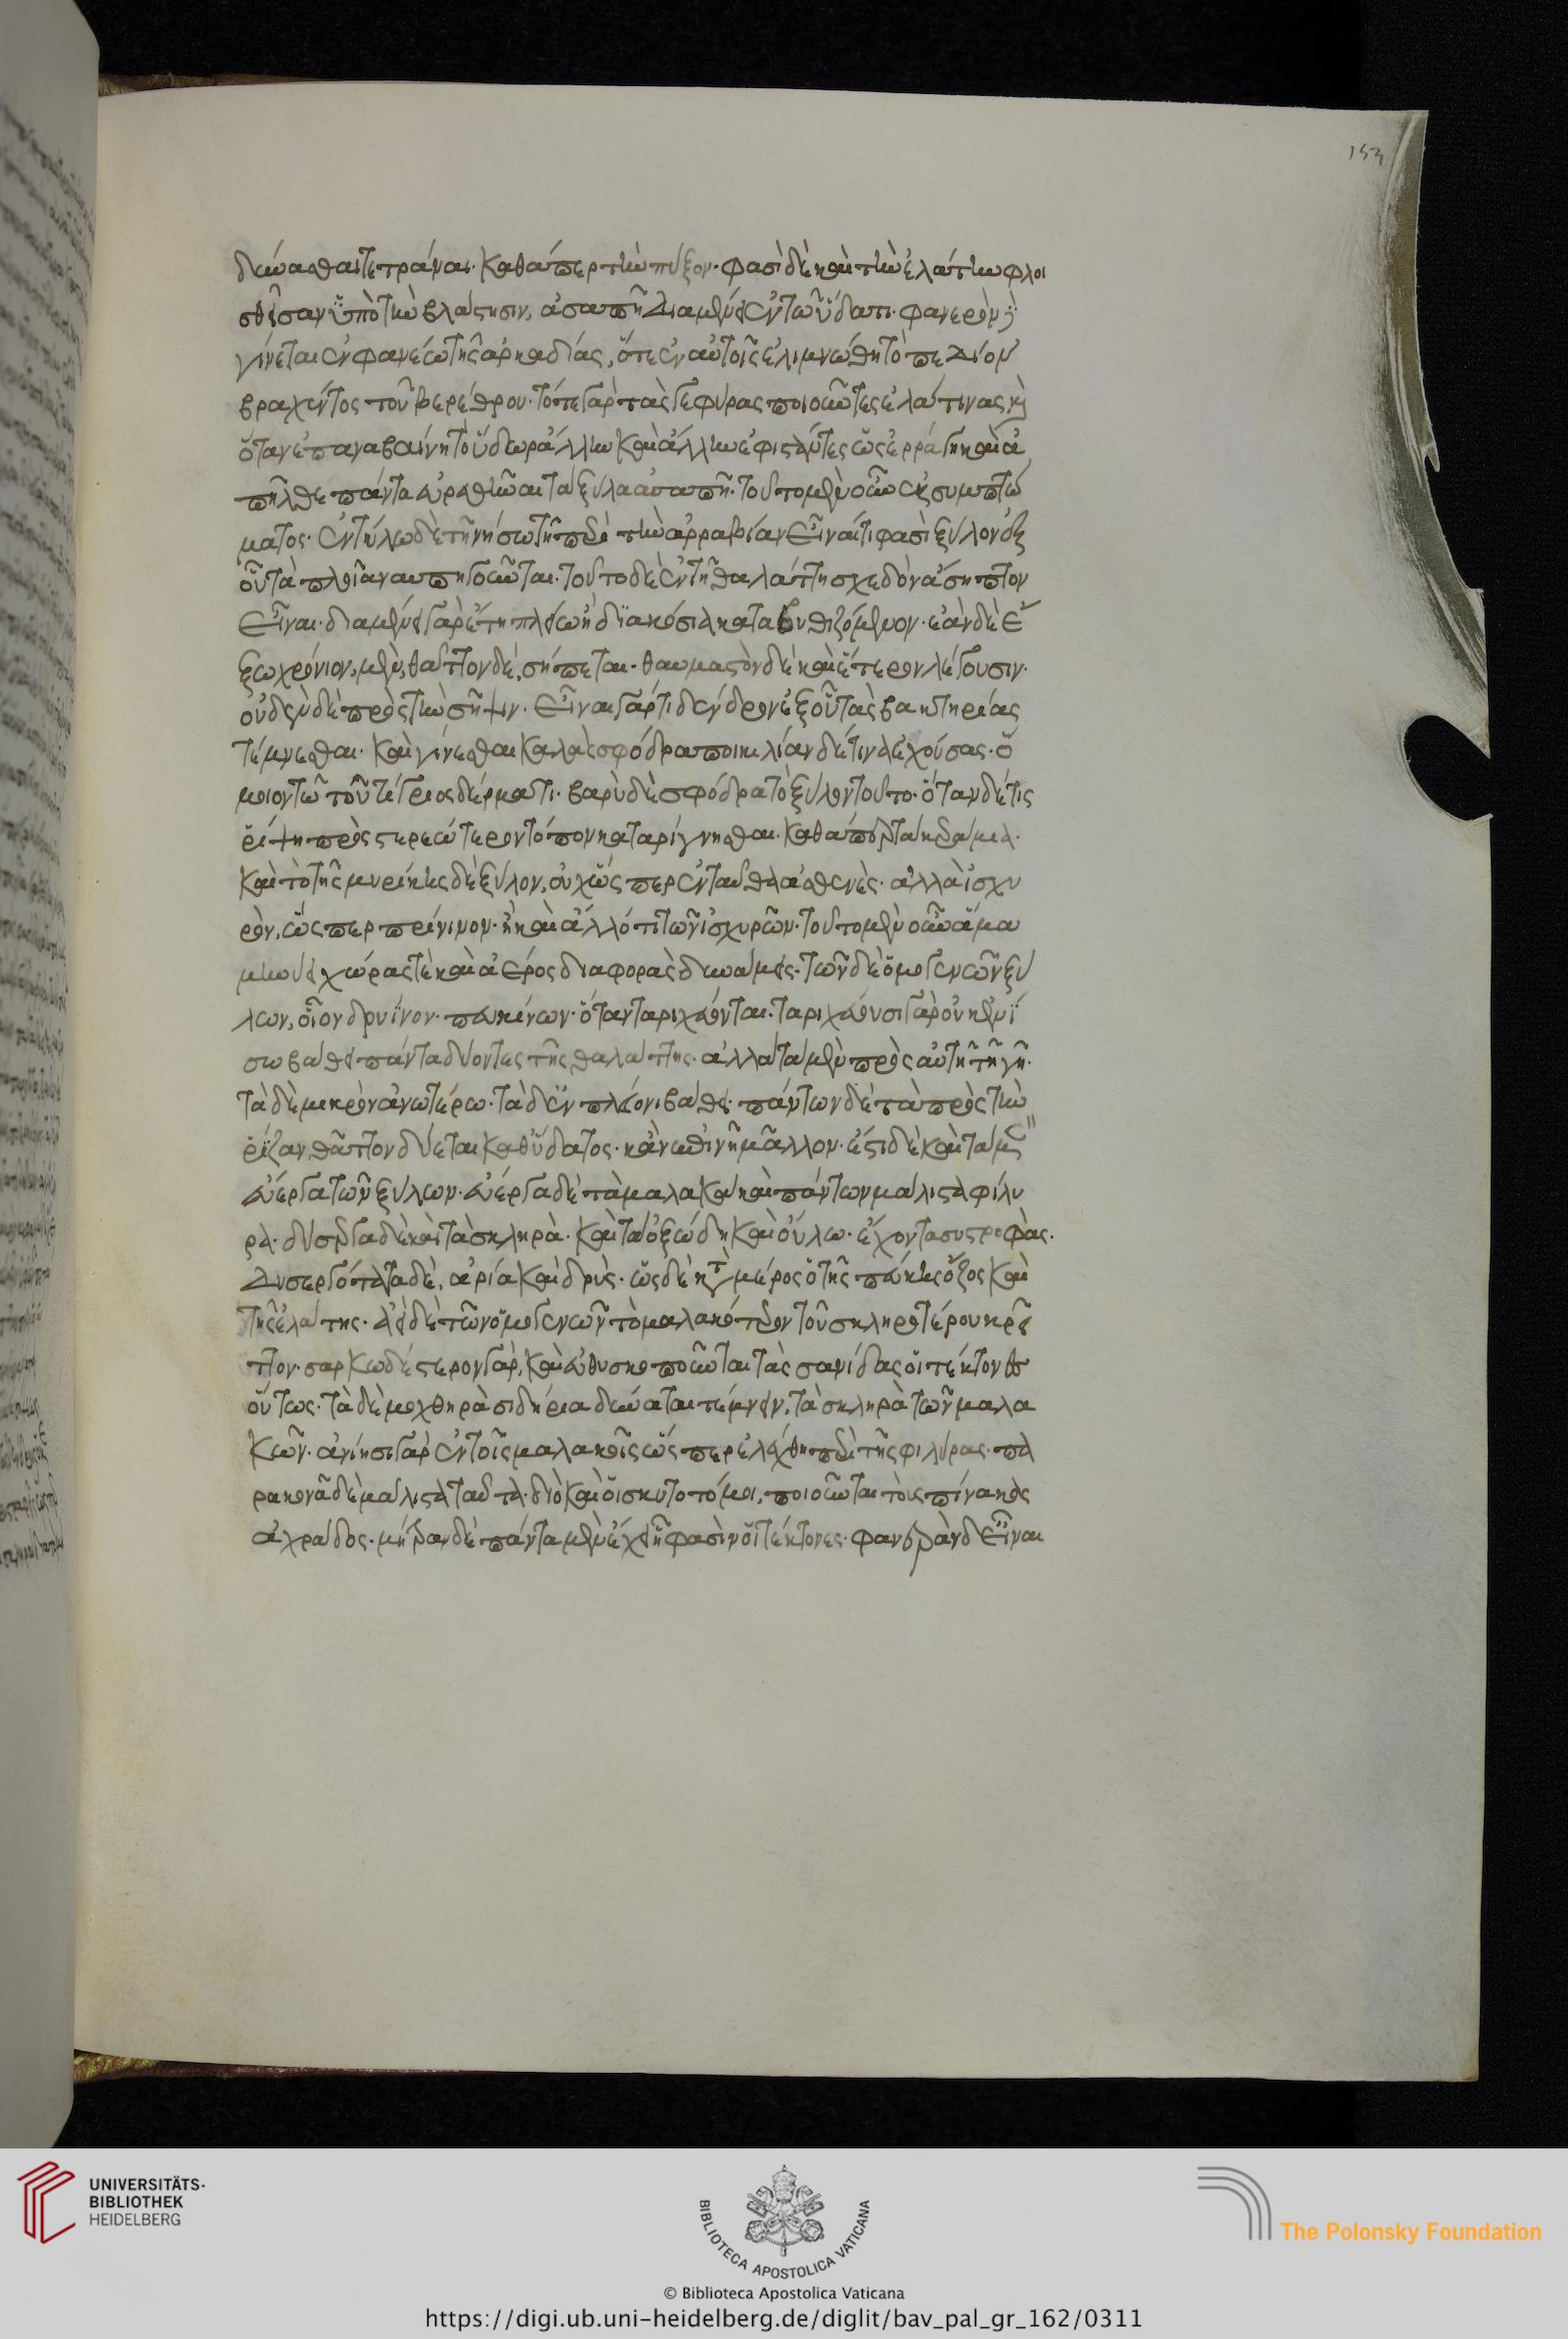 153
δύνασθαι τετράναι· καθάπερ τὴν πύξον· φασὶ δὲ καὶ τὴν ἐλάτην φλοι
σθεῖσαν ὑπὸ τὴν βλάστησιν, ἀσαπῆ διαμένειν ἐν τῶ ὕδατι· φανερὸν δὲ
γίνεται ἐν φανέω τῆς ἀρκαδίας, ὅτε ἐν αὐτοῖς ἐλιμνώθη τὸ πεδίον
βραχέντος τοῦ βερέθρου· τότε γὰρ τὰς γεφύρας ποιοῦντες ἐλατίνας καὶ
ὅταν ἐπαναβαίνη τὸ ὕδωρ ἄλλην καὶ ἄλλην ἐφιστάντες ὡς ἐρράγη καὶ ἀ
πῆλθε πάντα εὑρεθῆναι τὰ ξύλα ἀσαπῆ· τοῦτο μὲν οὖν ἐκ συμπτώ
ματος· ἐν τύλω δὲ τῆ νήσω τῆ περὶ τὴν ἀρραβίαν εἶναί τι φασὶ ξύλον ἐξ
οὗ τὰ πλοῖα ναυπηγοῦνται· τοῦτο δὲ ἐν τῆ θαλάττη σχεδὸν ἄσηπτον
εἶναι· διαμένει γὰρ ἔτη πλείω ἢ διακόσια καταβυθιζόμενον· ἐὰν δὲ ἔ
ξω χρόνιον, μὲν, θᾶττον δὲ, σήπεται· θαυμαστὸν δὲ καὶ ἕτερον λέγουσιν·
οὐδὲν δὲ πρὸς τὴν σῆψιν· εἶναι γάρ τι δένδρον ἐξ οὗ τὰς βακτηρίας
τέμνεσθαι· καὶ γίνεσθαι καλὰς σφόδρα ποικιλίαν δέ τινα ἐχούσας· ὅ
μοιον τῶ τοῦ τίγριος δέρματι· βαρὺ δὲ σφόδρα τὸ ξύλον τοῦτο· ὅταν δέ τις
ῥίψη πρὸς στερεώτερον τόπον καταρίγνησθαι· καθάπερ τὰ κεράμια·
καὶ τὸ τῆς μυρίκης δὲ ξύλον, οὐχ ὥς περ ἐνταῦθα ἀσθενὲς· ἀλλὰ ἰσχυ
ρὸν, ὥς περ πρίνινον· ἢ καὶ ἄλλό τι τῶν ἰσχυρῶν· τοῦτο μὲν οὖν ἅμα
μηνύει χώρας τὲ καὶ ἀέρος διαφορὰς δυνάμεις· τῶν δὲ ὁμογενῶν ξύ
λων, οἷον δρυΐνον· πευκίνων· ὅταν ταριχεύονται· ταριχεύουσι γὰρ οὐκ ἐν ἴ
σω βάθει πάντα δύοντες τῆς θαλάττης· ἀλλὰ τὰ μὲν πρὸς αὐτῆ τῆ γῆ·
τὰ δὲ μικρὸν ἀνωτέρω· τὰ δ' ἐν πλείονι βάθει· πάντων δὲ τὰ πρὸς τὴν
ῥίζαν, θᾶττον δύεται καθ' ὕδατος· κἂν ἐπινῆ μᾶλλον· ἔστι δὲ καὶ τὰ μὲν
εὔεργα τῶν ξύλων· εὔεργα δὲ τὰ μαλακὰ καὶ πάντων μάλιστα φίλυ
ρα· δύσεργα δὲ καὶ τὰ σκληρὰ· καὶ τὰ ὀζώδη καὶ οὔλω· ἔχοντα συστροφὰς·
δυσεργότατα δὲ, ἀρία καὶ δρῦς· ὡς δὲ κατὰ μέρος ὁ τῆς πεύκης ὄζος καὶ
τῆς ἐλάτης· ἀεὶ δὲ τῶν ὁμογενῶν τὸ μαλακότερον τοῦ σκληροτέρου κρεῖ
ττον· σαρκωδέστερον γάρ, καὶ εὐθυσκοποῦνται τὰς σανίδας οἱ τέκτονες
οὕτως· τὰ δὲ μοχθηρὰ σιδήρια δύναται τέμνειν, τὰ σκληρὰ τῶν μαλα
κῶν· ἀνίησι γὰρ ἐν τοῖς μαλακοῖς ὥς περ ἐλέχθη περὶ τῆς φιλύρας· πα
ρακονᾶ δὲ μάλιστα ταῦτα· διὸ καὶ οἱ σκυτοτόμοι, ποιοῦνται τοὺς πίνακας
ἀχράδος· μήτραν δὲ πάντα μὲν ἔχειν φασὶν οἱ τέκτονες· φανερὰν δ' εἶναι
UNIVERSITÄTS-
BIBLIOTHEK
HEIDELBERG
BIBLIOTECA APOSTOLICA VATICANA
The Polonsky Foundation
© Biblioteca Apostolica Vaticana
https://digi.ub.uni-heidelberg.de/diglit/bav_pal_gr_162/0311